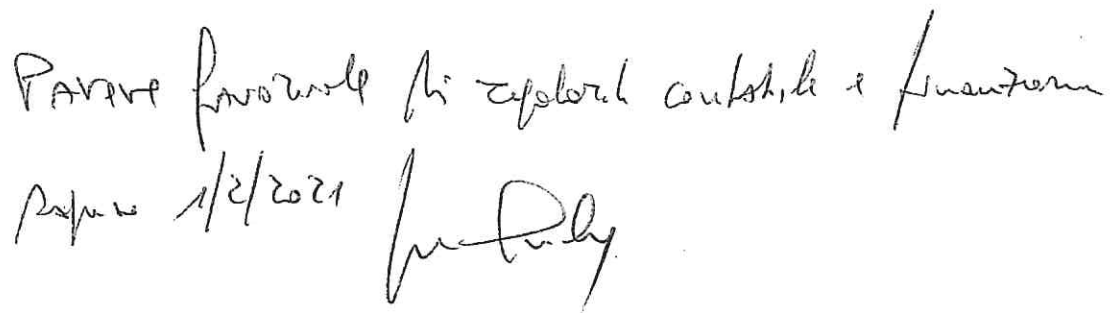 Parere favorevole di regolarità contabile e finanziaria
1/2/2021